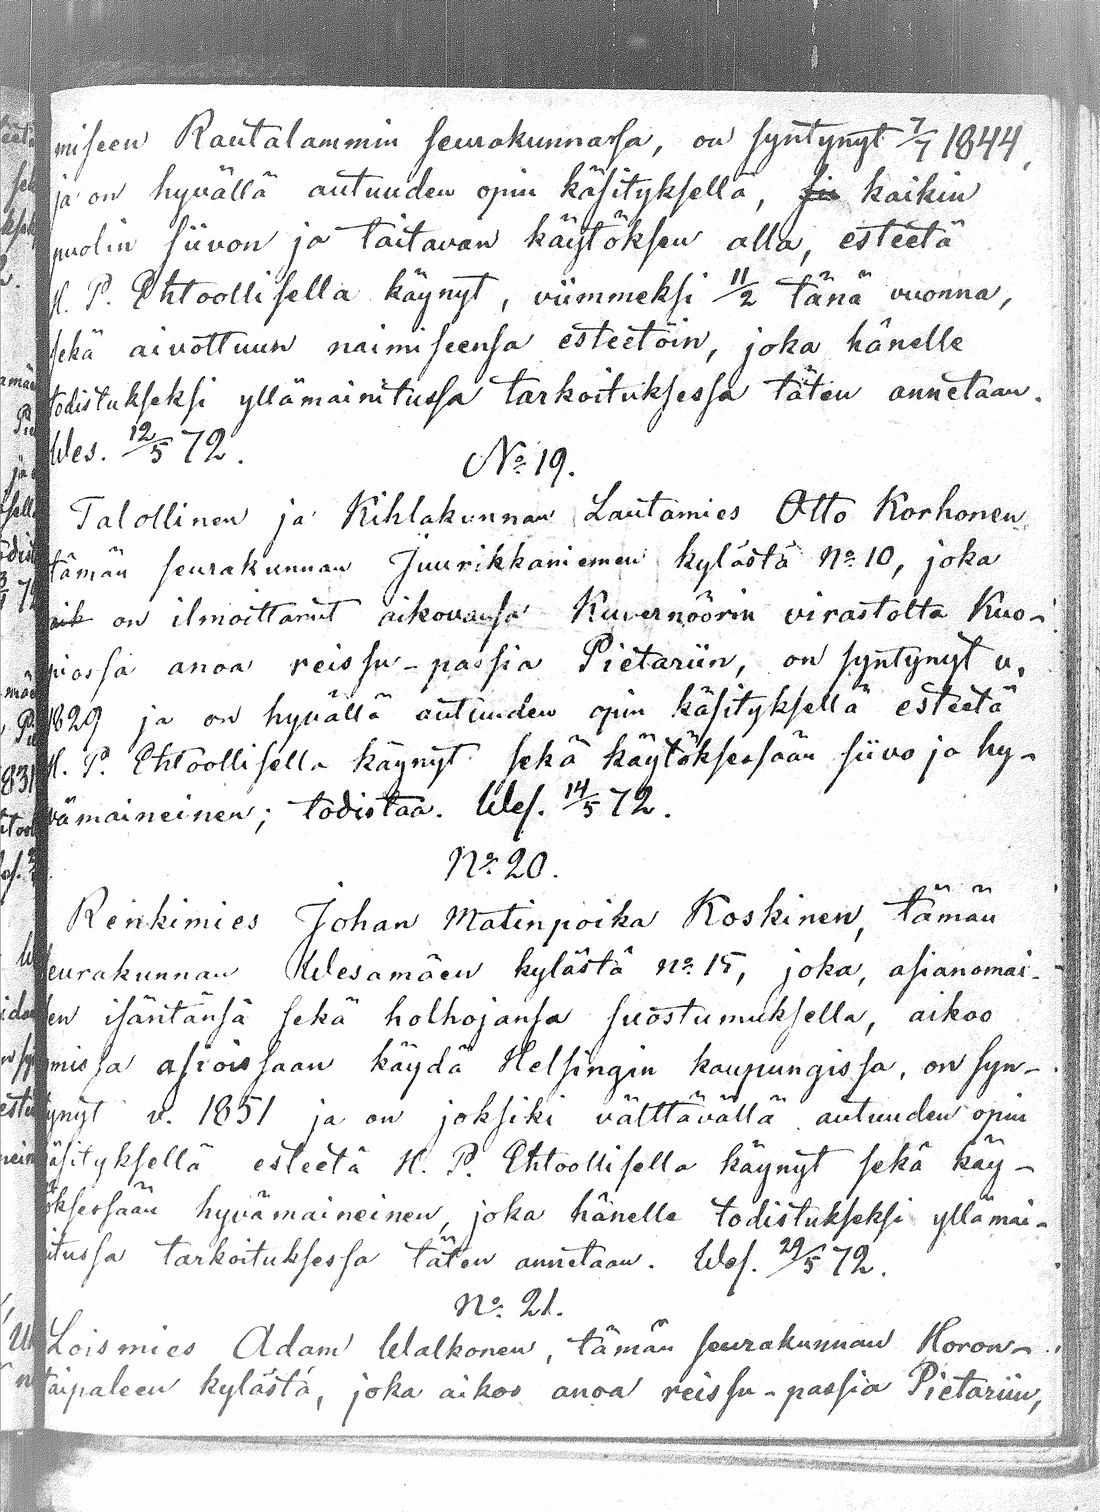 miseen Rautalammin seurakunnassa, on syntynyt 7/7 1844,
ja on hyvällä autuuden opin käsityksellä, sii kaikin
puolin siivon ja taitavan käytöksen alla, esteetä
H. P. Ehtoollisella käynyt, viimmeksi 11/2 tänä vuonna,
sekä aivottuun naimiseensa esteetöin, joka hänelle
todistukseksi yllämainitussa tarkoituksessa täten annetaan.
Wes. 12/5 72.
No: 19.
Talollinen ja Kihlakunnan Lautamies Otto Korhonen
tämän seurakunnan Juurikkaniemen kylästä No: 10, joka
aik on ilmoittanut aikovansa Kuvernöörin virastolta Kuo-
piossa anoa reissu-passia Pietariin, on syntynyt v.
1829 ja on hyvällä autuuden opin käsityksellä esteetä
H. P. Ehtoollisella käynyt sekä käytöksessään siivo ja hy-
vämaineinen; todistaa. Wes. 14/5 72.
No: 20.
Renkimies Johan Matinpoika Koskinen, tämän
seurakunnan Wesamäen kylästä No: 15, joka, asianomai-
sen isäntänsä sekä holhojansa suostumuksella, aikoo
omissa asioissaan käydä Helsingin kaupungissa, on syn-
tynyt v. 1851 ja on joksiki välttävällä autuuden opin
käsityksellä esteetä H. P. Ehtoollisella käynyt sekä käy-
töksessään hyvämaineinen, joka hänelle todistukseksi yllämai-
nitussa tarkoituksessa täten annetaan. Wes. 29/5 72.
No: 21.
Loismies Adam Walkonen, tämän seurakunnan Horon-
taipaleen kylästä, joka aikoo anoa reissu-passia Pietariin,